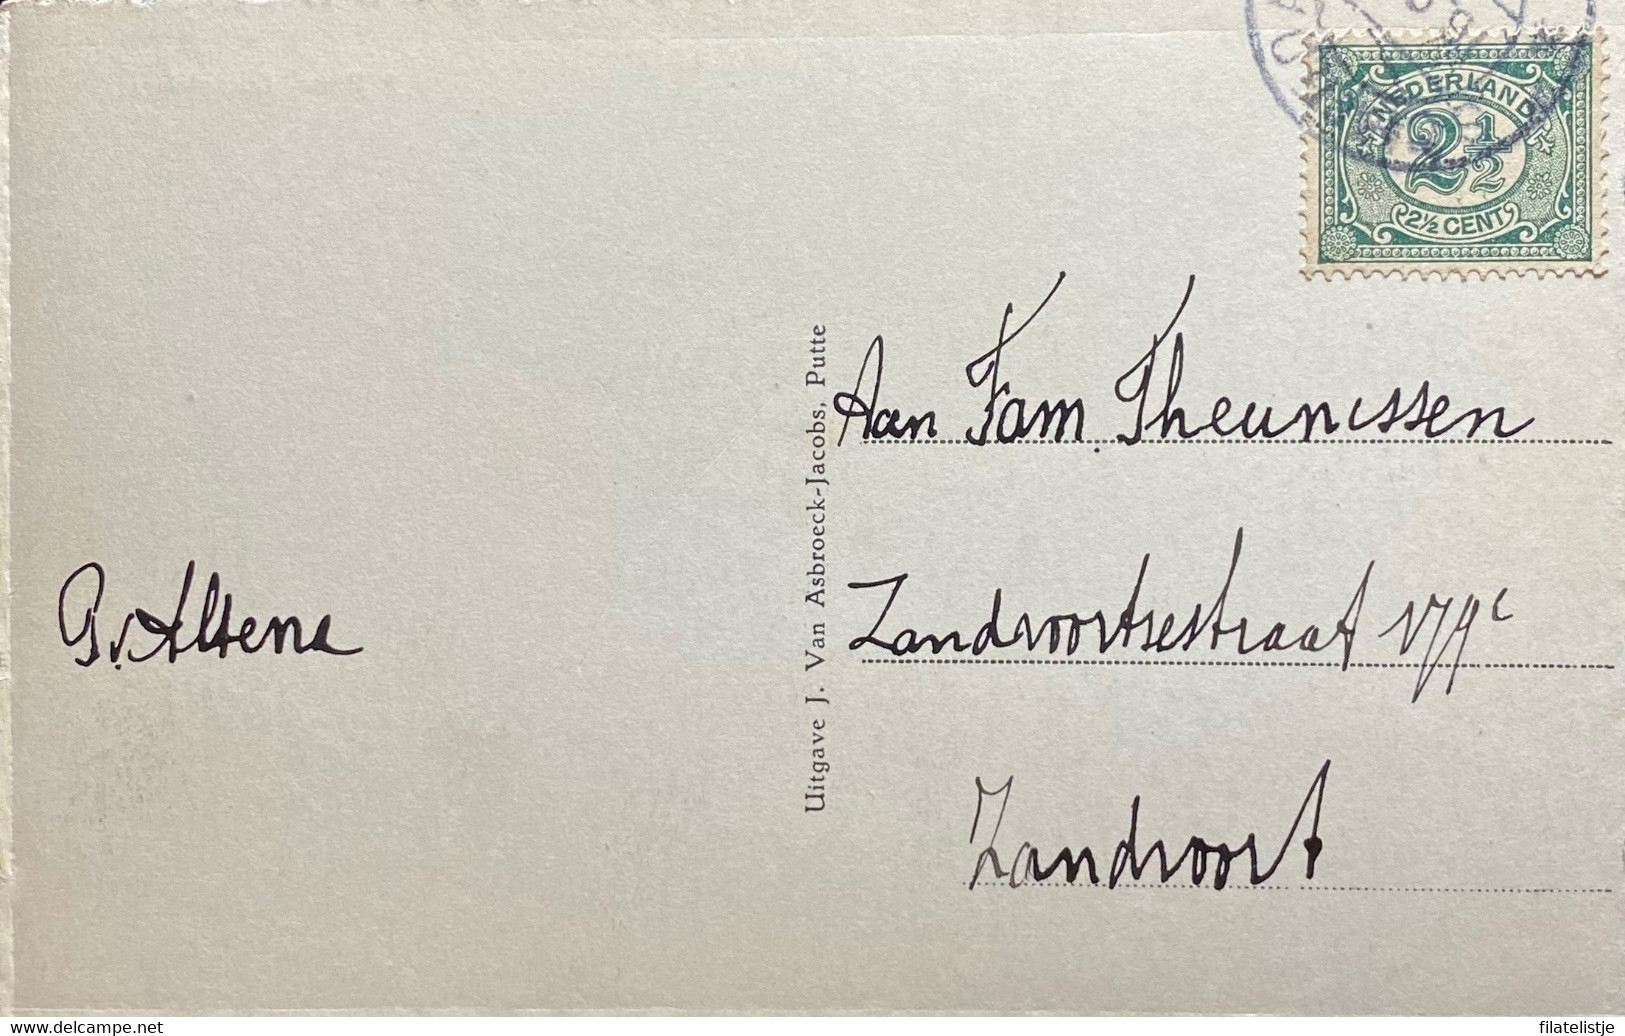 NEDERLAND
2 1/2
2½ CENT
Aan Fam. Theunissen
Zandvoortsestraat
Zandvoort
G. v. Altena
Uitgave J. Van Asbroeck-Jacobs, Putte
www.delcampe.net
filatelistje